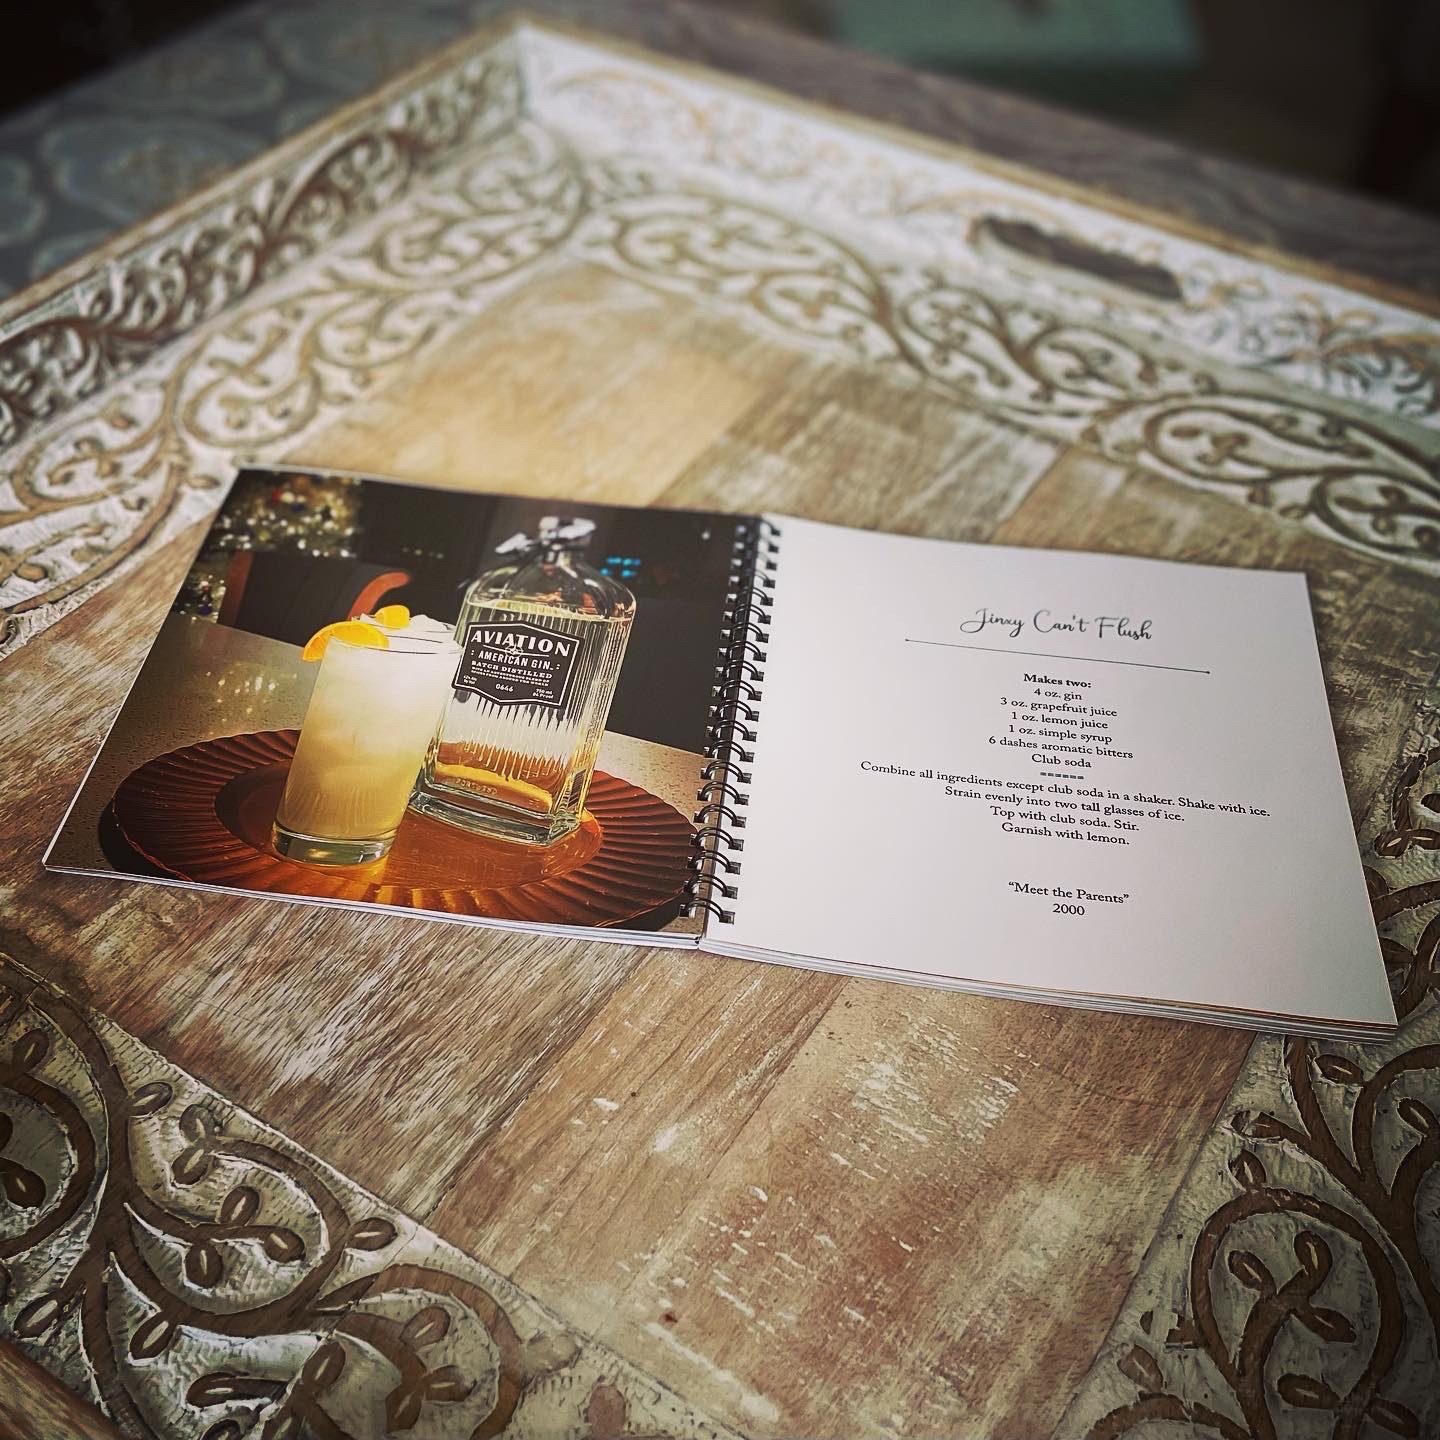 AVIATION
AMERICAN GIN
BATCH DISTILLED
0646
750 ml
Jinxy Can't Flush
Makes two:
4 oz. gin
3 oz. grapefruit juice
1 oz. lemon juice
1 oz. simple syrup
6 dashes aromatic bitters
Club soda
======
Combine all ingredients except club soda in a shaker. Shake with ice.
Strain evenly into two tall glasses of ice.
Top with club soda. Stir.
Garnish with lemon.
“Meet the Parents”
2000